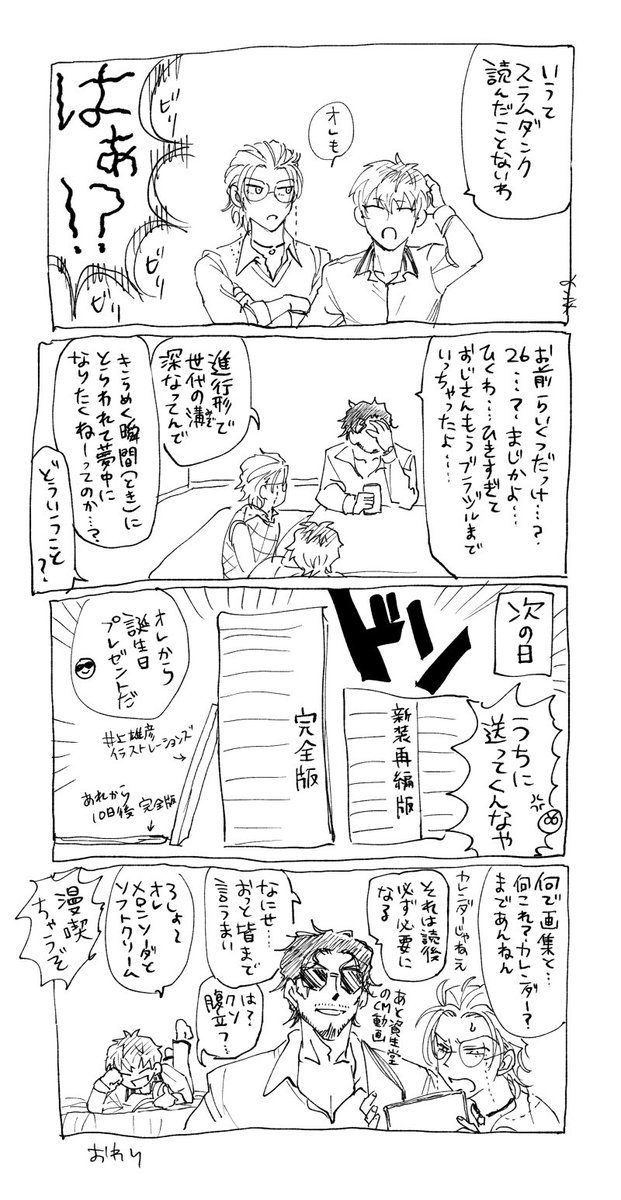 いうて
スラムダンク
読んだことないわ
オレも
はぁ!?
ビリ
ビリ
ビリ
お前らいくつだっけ…?
26…?まじかよ…
ひくわ…ひきすぎて
おじさんもうブラジルまで
いっちゃったよ…
進行形で
世代の溝
深なってんで
きらめく瞬間(とき)に
とらわれて夢中に
なりたくねーってのか…?
どういうこと
?
次の日
ドン
うちに
送ってくんなや
新装再編版
完全版
オレから
誕生日
プレゼントだ
井上雄彦
イラストレーションズ
あれから
10日後 完全版
何で画集と…
何これ?カレンダー?
まであんねん
カレンダーじゃねえ
それは読後
必ず必要に
なる
あと資生堂
のCM動画
なにせ…
おっと皆まで
言うまい
は?
クソ
腹立つ…
ろしょ〜
オレ
メロンソーダと
ソフトクリーム
漫喫
ちゃうぞ
おわり